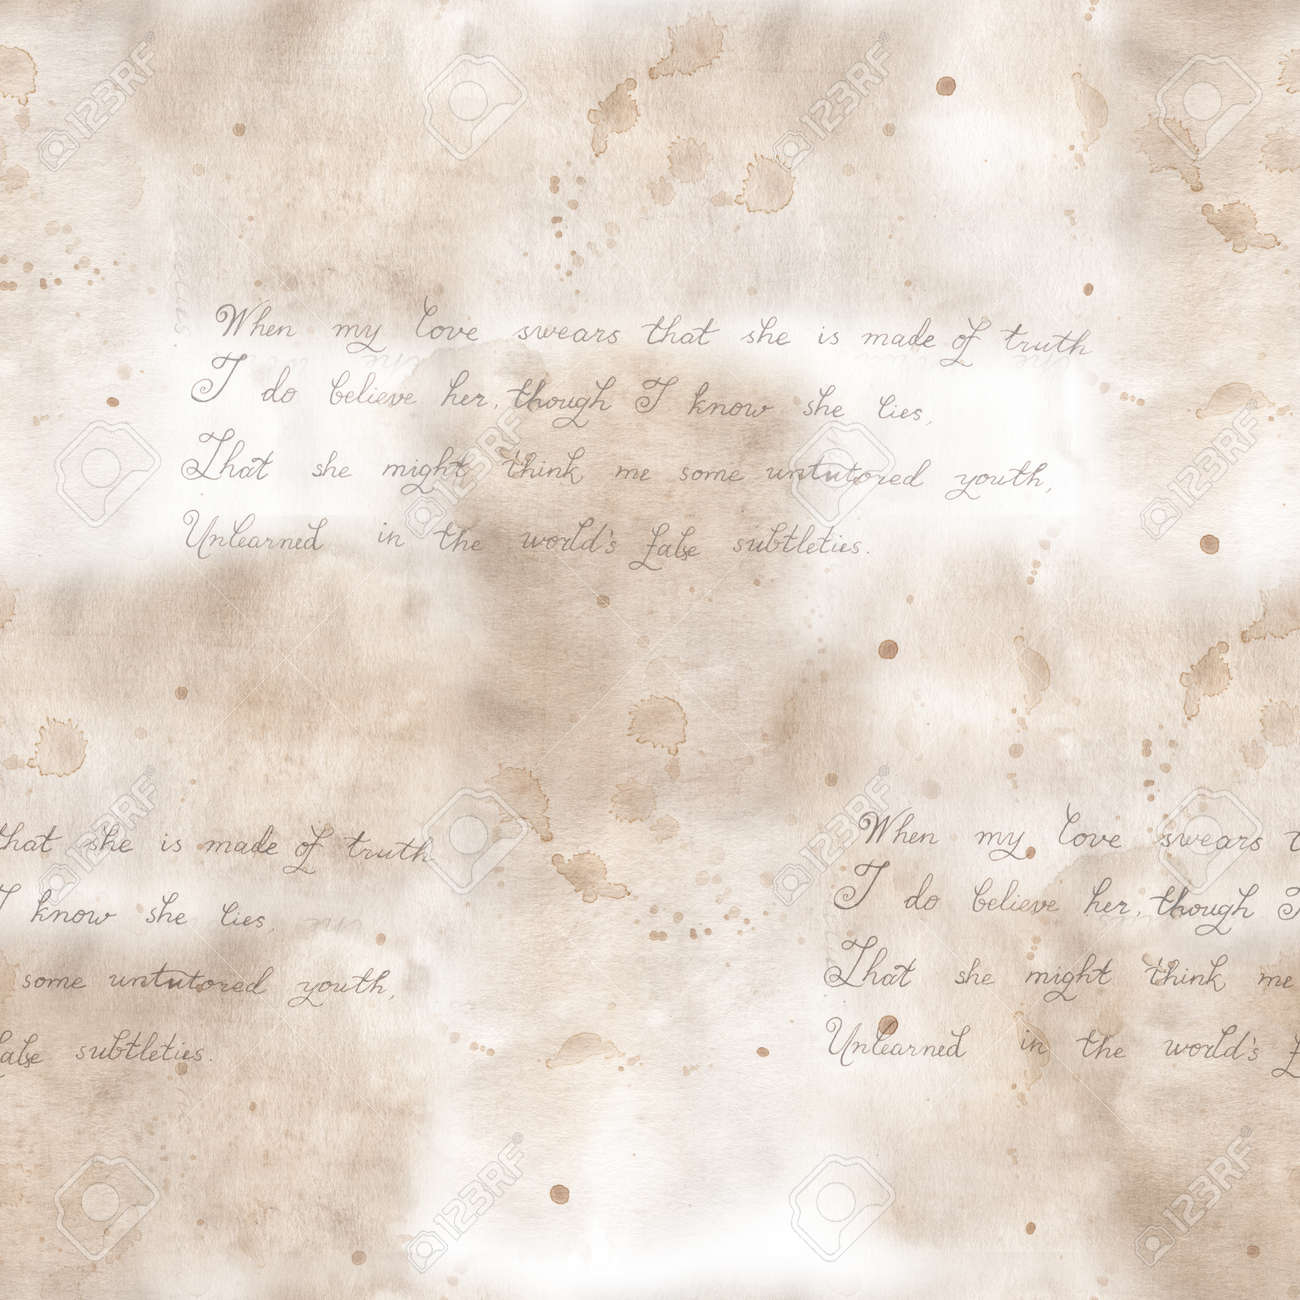 When my love swears that she is made of truth
I do believe her, though I know she lies,
That she might think me some untutored youth,
Unlearned in the world's false subtleties.
that she is made of truth
I know she lies,
some untutored youth,
false subtleties.
When my love swears t
I do believe her, though I
That she might think me
Unlearned in the world's f
123RF